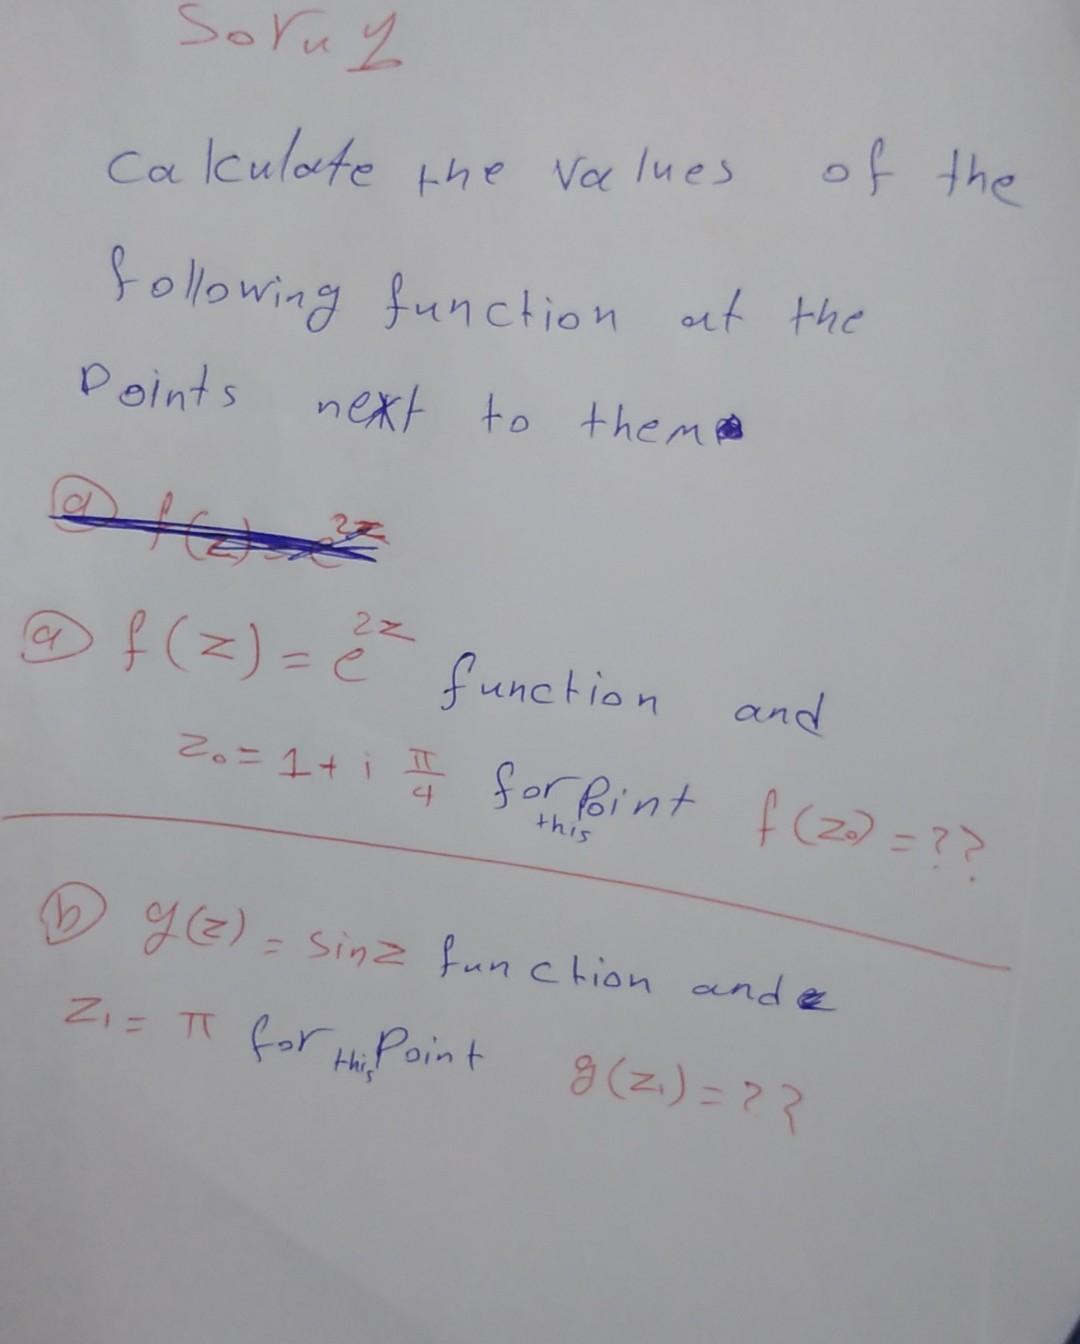 Soru 1
Calculate the values of the
following function at the
Points next to them
a) f(z) = e^2z
a) f(z) = e^2z function and
z₀ = 1 + i π/4 for this Point f(z₀) = ??
b) g(z) = sinz function and
z₁ = π for this Point g(z₁) = ??